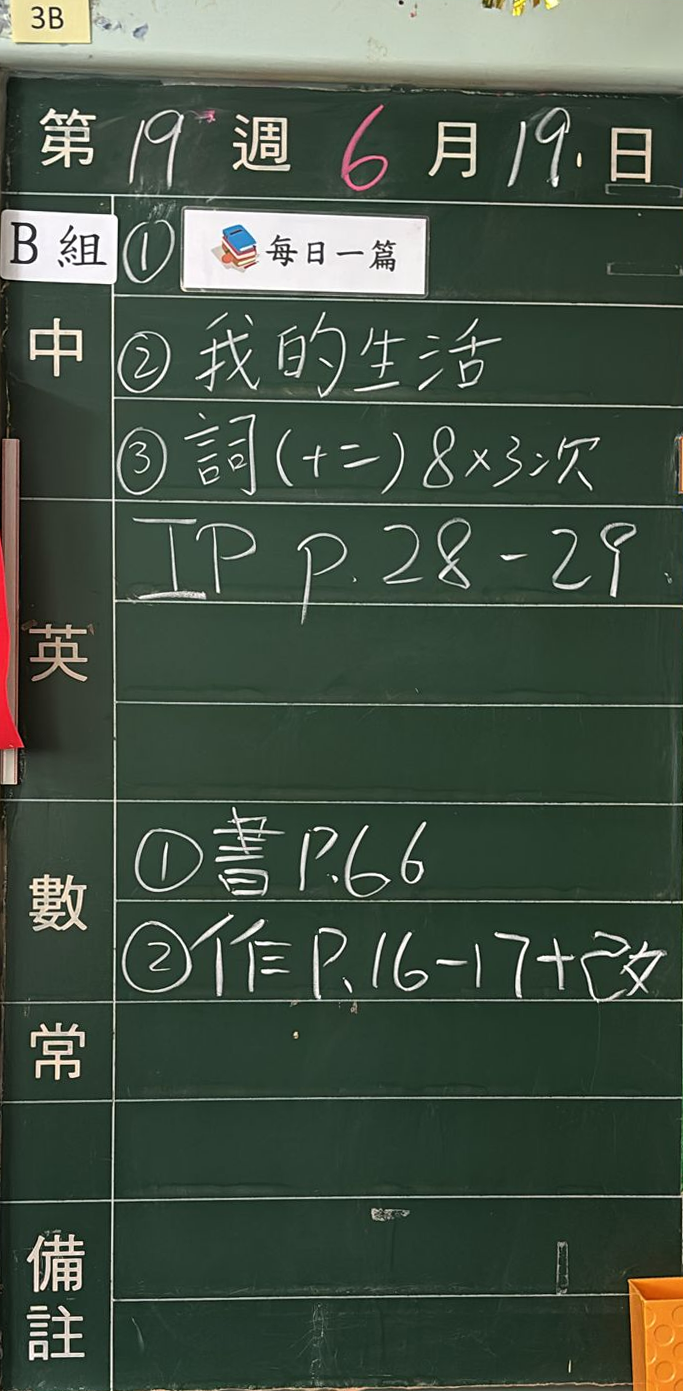 3B
第19週6月19.日
B組 ① 每日一篇
中 ② 我的生活
③ 詞(十二)8×3次
英 IP p.28-29.
數 ① 書P.66
② 作P.16-17+改
常
備註